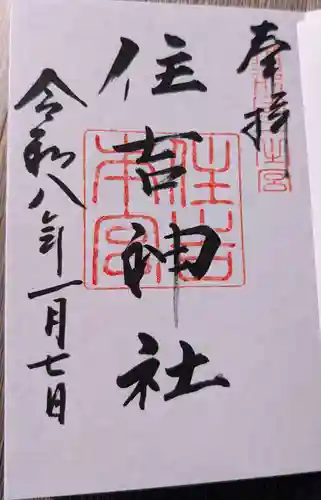 奉拝
住吉神社
令和八年一月七日
住吉本宮